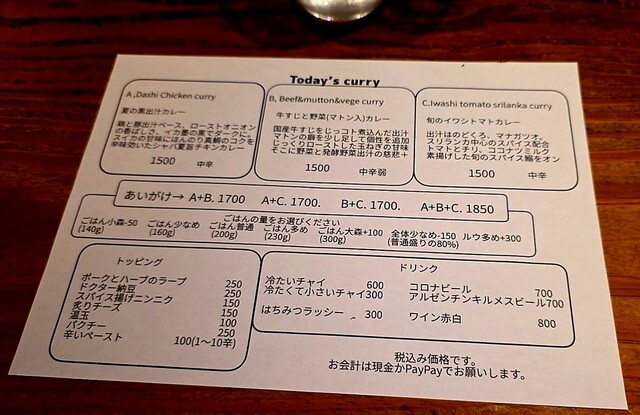 Today's curry
A ,Dashi Chicken curry
夏の黒出汁カレー
鶏と豚出汁ベース、ローストオニオン
の香ばしさ、イカ墨の黒でダークに。
スイカの甘味にほんのり真鯛のコクを
辛味効いたシャバ夏旨チキンカレー
1500 中辛
B, Beef&mutton&vege curry
牛すじと野菜(マトン入)カレー
国産牛すじをじっコト煮込んだ出汁
マトンの癖を少し足して個性を追加
じっくりローストした玉ねぎの甘味
そこに野菜と発酵野菜出汁の慈悲+
1500 中辛弱
C.Iwashi tomato srilanka curry
旬のイワシトマトカレー
出汁はのどくろ、マナガツオ。
スリランカ中心のスパイス配合
トマトとチリ、ココナツミルク
素揚げした旬のスパイス鰯をオン
1500 中辛
あいがけ→ A+B. 1700 A+C. 1700 B+C. 1700 A+B+C. 1850
ごはんの量をお選びください
ごはん小森-50 ごはん少なめ ごはん普通 ごはん多め ごはん大森+100 全体少なめ-150 ルウ多め+300
(140g) (160g) (200g) (230g) (300g) (普通盛りの80%)
トッピング
ポークとハーブのラープ 250
ドクター納豆 250
スパイス揚げニンニク 150
炙りチーズ 150
温玉 100
パクチー 250
辛いペースト 100(1～10辛)
ドリンク
冷たいチャイ 600
冷たくて小さいチャイ300
はちみつラッシー 300
コロナビール 700
アルゼンチンキルメスビール700
ワイン赤白 800
税込み価格です。
お会計は現金かPayPayでお願いします。